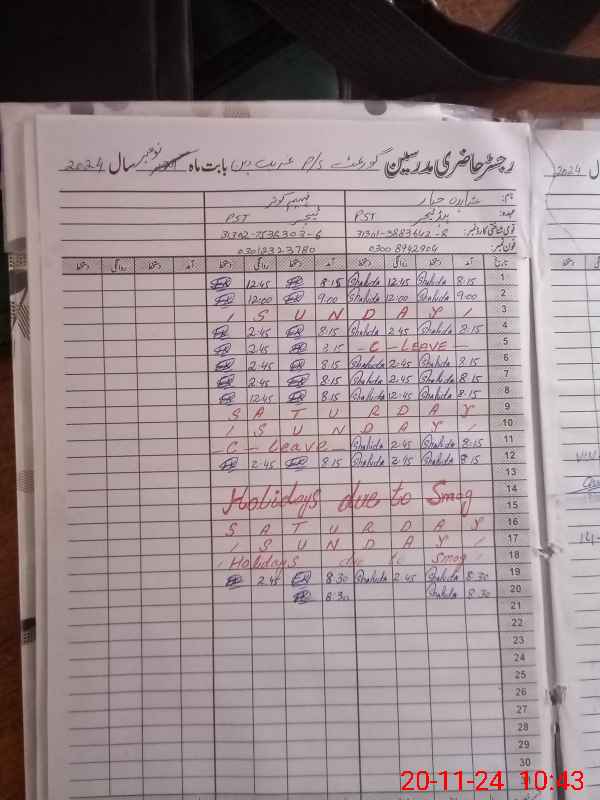 رجسٹر حاضری مدرسین گورنمنٹ P/S بابت ماہ نومبر سال 2024
نام:
عہدہ: ہیڈ ٹیچر PST ٹیچر PST
قومی شناختی کارڈ نمبر: 31301-3883642-8 31302-7536303-6
فون نمبر: 0300 8942904 03012323780
تاریخ آمد دستخط روانگی دستخط آمد دستخط روانگی دستخط آمد دستخط روانگی دستخط
1 8:15 Shahida 12:45 Shahida 8:15 12:45
2 9:00 Shahida 12:00 Shahida 9:00 12:00
3 / SUNDAY /
4 8:15 Shahida 2:45 Shahida 8:15 2:45
5 - C - Leave - 8:15 2:45
6 8:15 Shahida 2:45 Shahida 8:15 2:45
7 8:15 Shahida 2:45 Shahida 8:15 2:45
8 8:15 Shahida 12:45 Shahida 8:15 12:45
9 SATURDAY
10 / SUNDAY /
11 8:15 Shahida 2:45 Shahida - C - Leave
12 8:15 Shahida 2:45 Shahida 8:15 2:45
13
14 Holidays due to Smog
15
16 SATURDAY
17 / SUNDAY /
18 / Holidays due to Smog /
19 8:30 Shahida 2:45 Shahida 8:30 2:45
20 8:30 Shahida 8:30
21
22
23
24
25
26
27
28
29
30
سال 2024
20-11-24 10:43